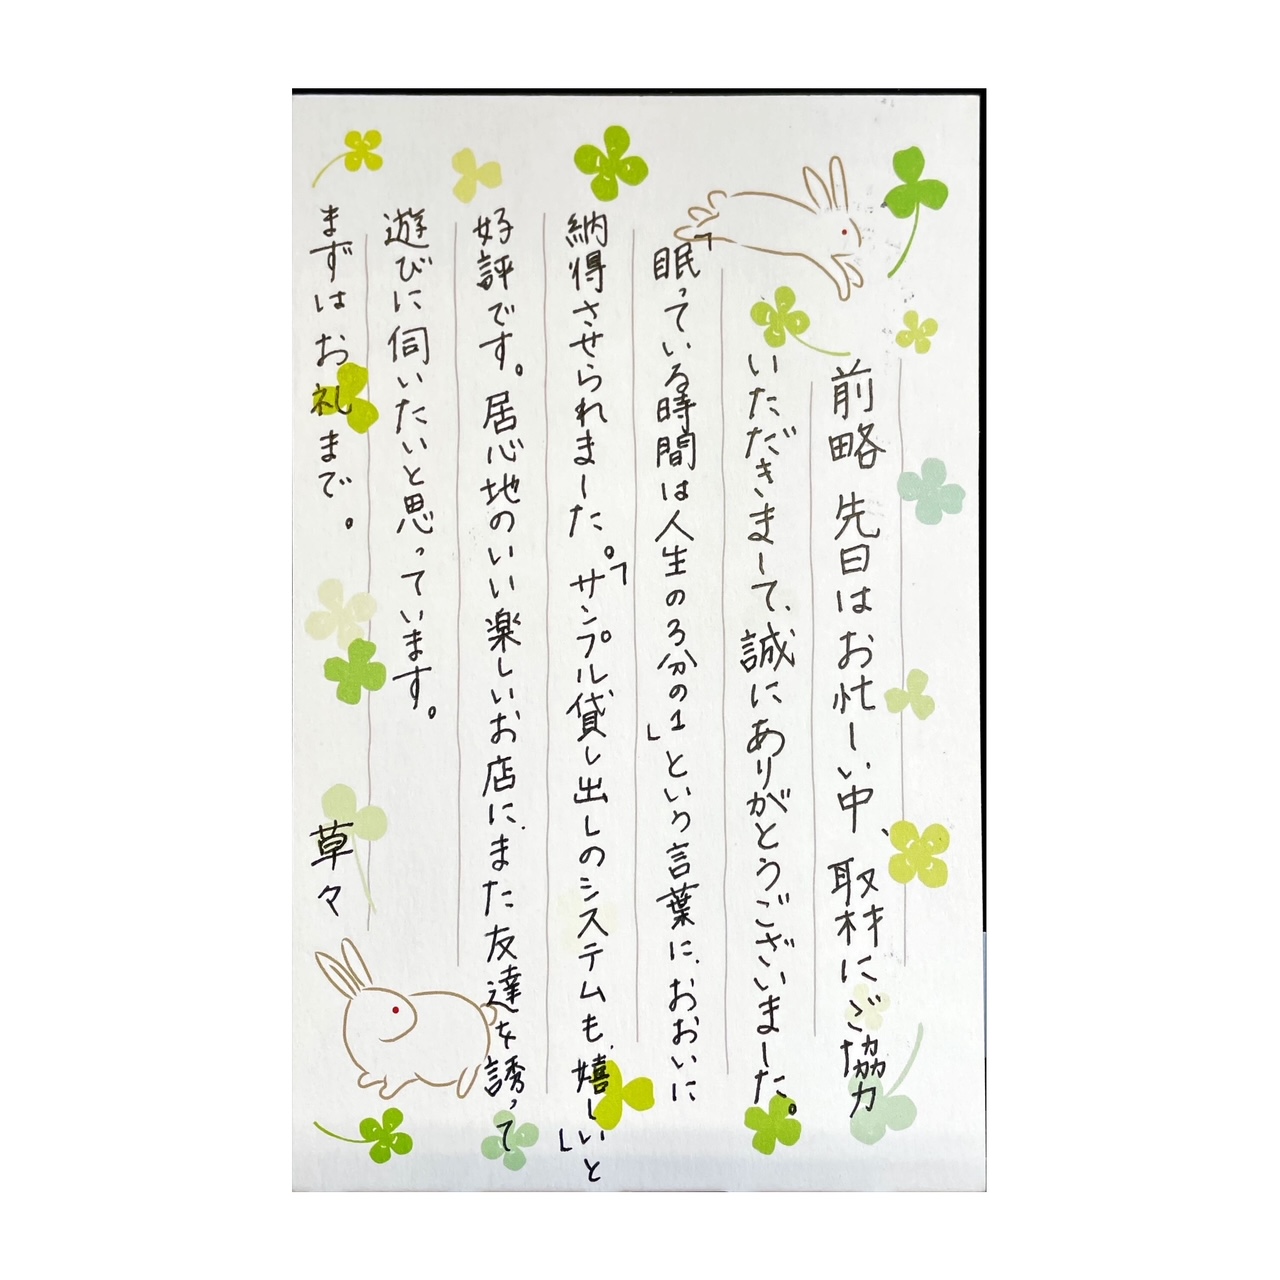 前略 先日はお忙しい中、取材にご協力
いただきまして、誠にありがとうございました。
「眠っている時間は人生の3分の1」という言葉に、おおいに
納得させられました。「サンプル貸し出しのシステムも、嬉しい」と
好評です。居心地のいい楽しいお店に、また友達を誘って
遊びに伺いたいと思っています。
まずはお礼まで。 草々